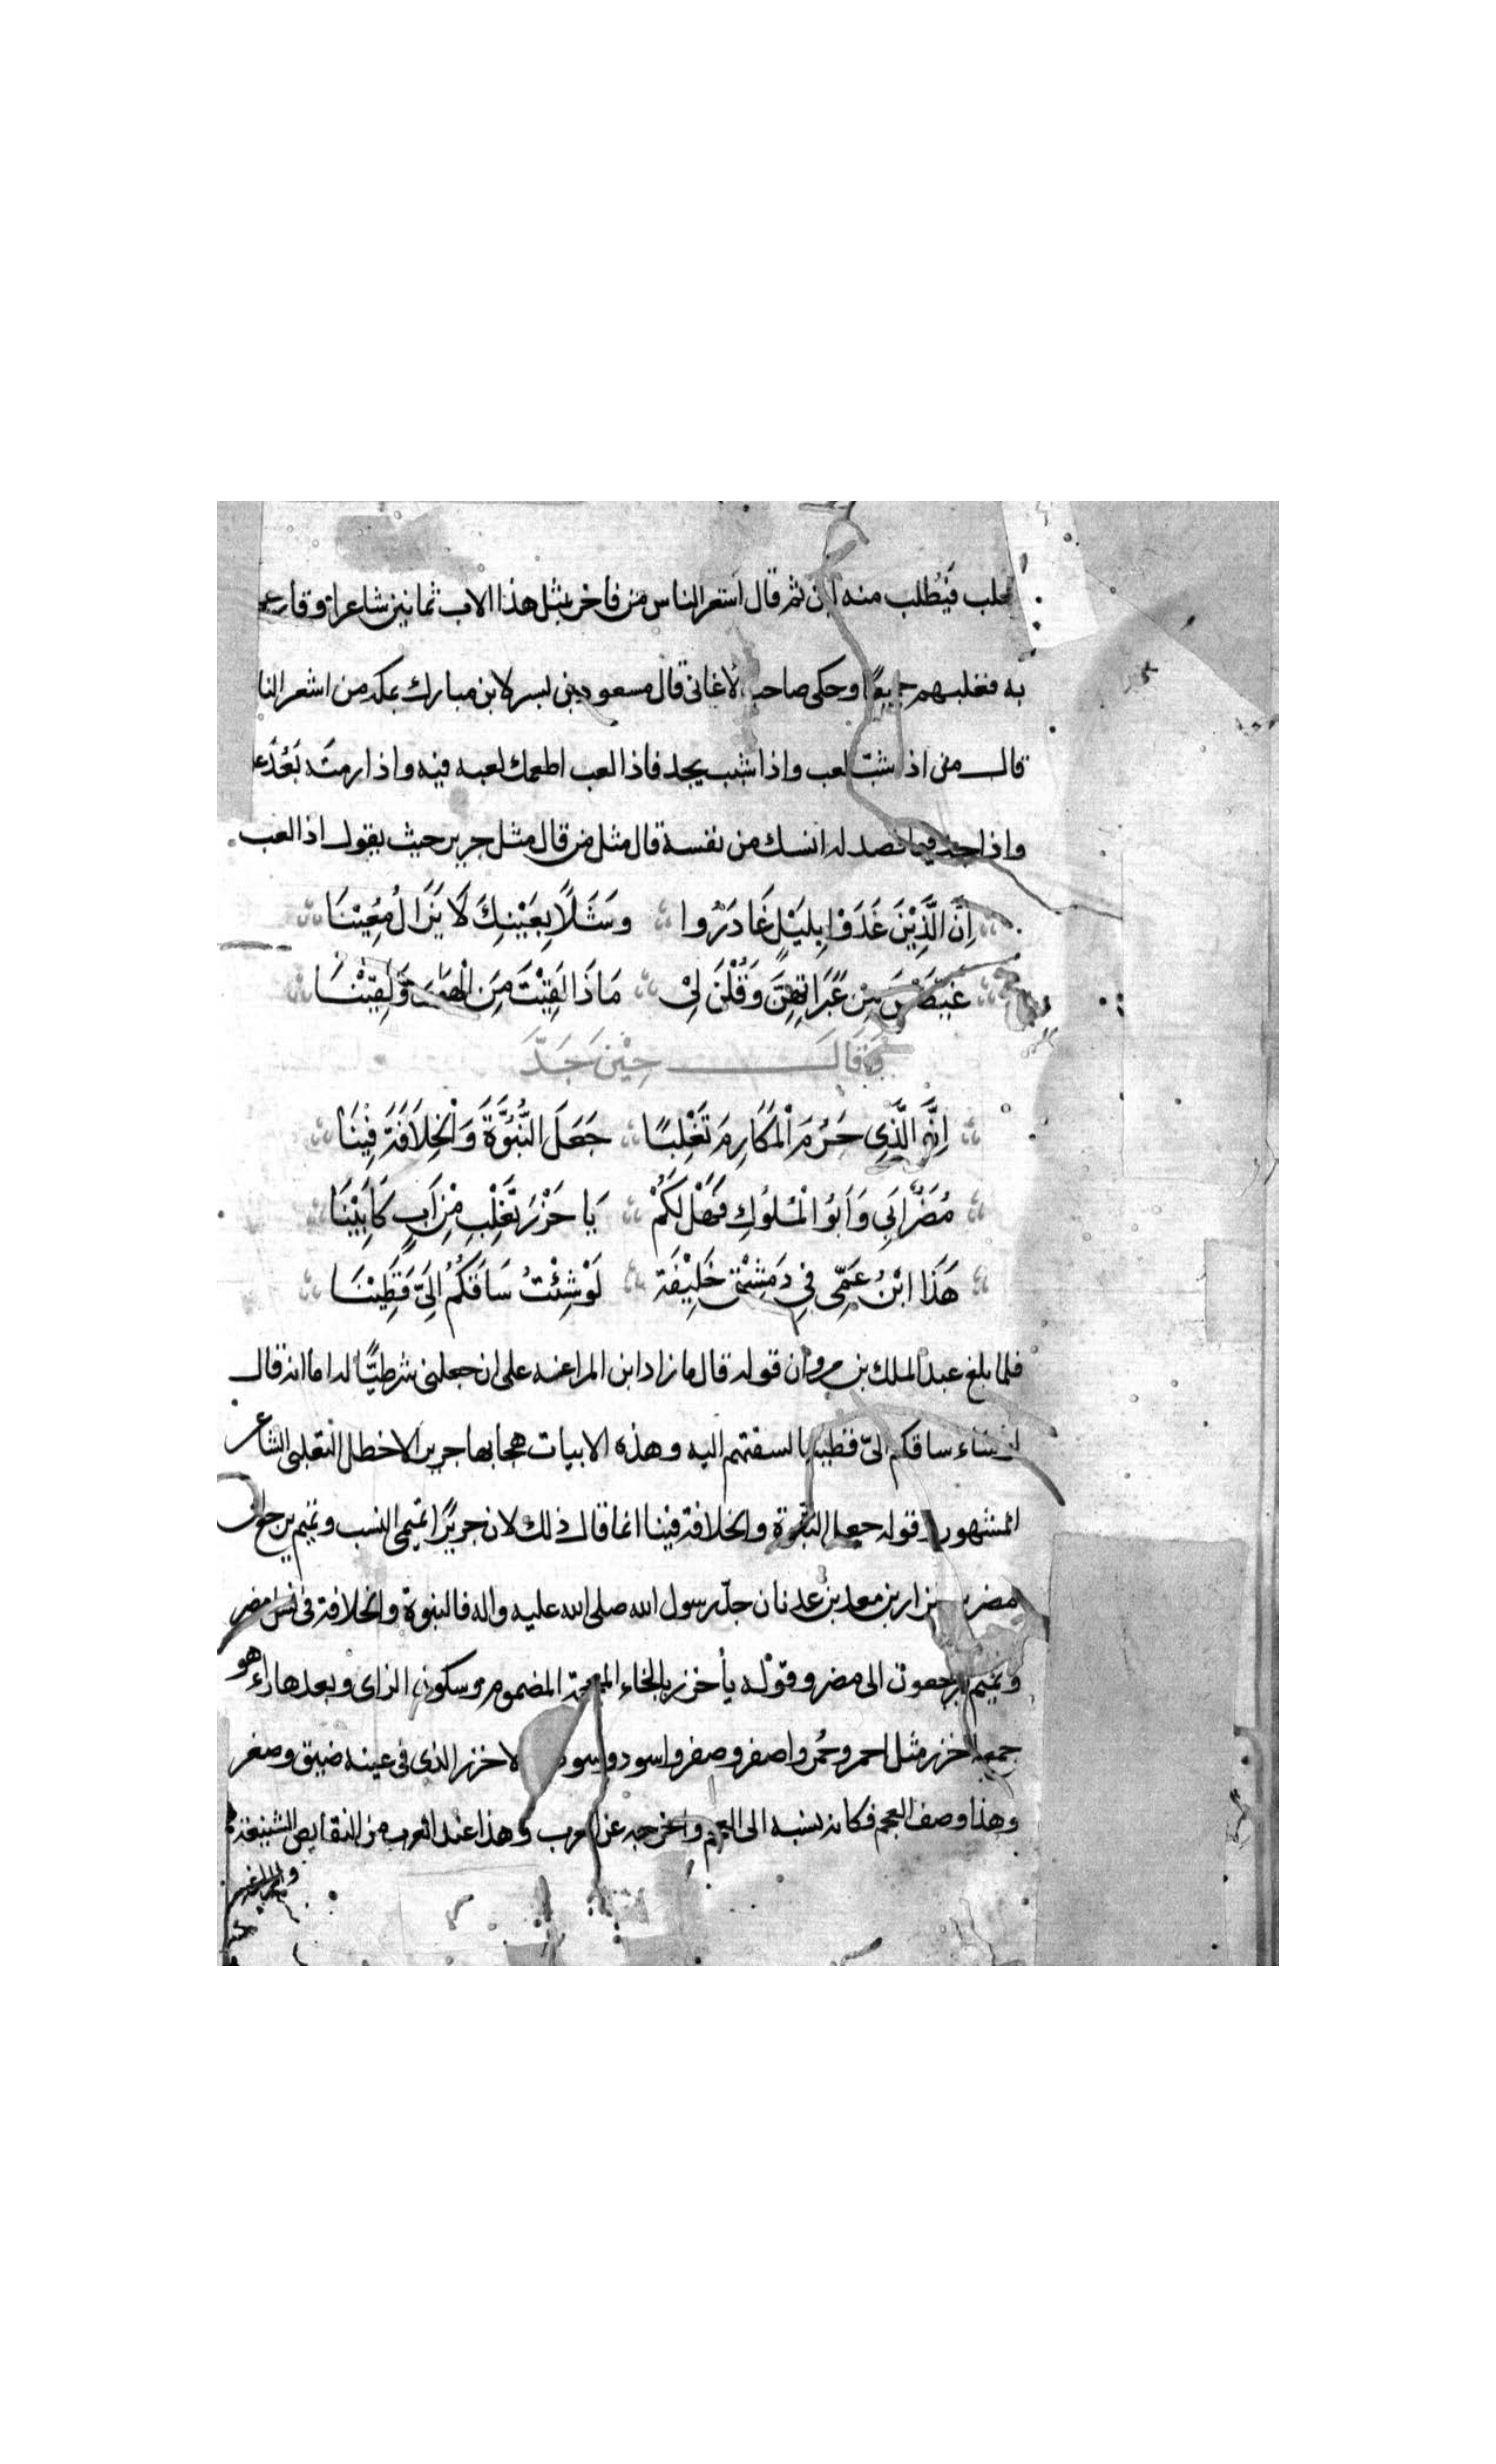 حلب فيُطلب منه لبن ثم قال اشعر الناس من فاخر بمثل هذا الاب ثمانين شاعرا وقارعهم
به فغلبهم جميعًا وحكى صاحب الاغانى قال مسعود بن بسر لابن مبارك بمكه من اشعر النا
قال من اذا شبّ لعب واذا شبب يجد فاذا لعب اطمعك لعبه فيه واذا رمتَه بَعُدَ عـ
واذا جد فيما قصد له انسك من نفسه قال مثل من قال مثل جرير حيث يقول اذا لعب
اِنَّ الَّذِيْنَ غَدَوْا بِلَيْلٍ غَادَرُوا وَشَلًا بِعَيْنِكَ لَا يَزَالُ مُعِيْنَا
غَيَّضْنَ مِنْ عَبَرَاتِهِنَّ وَقُلْنَ لِىْ مَاذَا لَقِيْتَ مِنَ الْهَوَى وَلَقِيْنَا
وَقَالَ حِيْنَ جَدَّ
اِنَّ الَّذِى حَرُمَ الْمَكَارِمَ تَغْلِبًا جَعَلَ النُّبُوَّةَ وَالْخِلَافَةَ فِيْنَا
مُضَرٌ اَبِى وَاَبُوْ الْمُلُوْكِ فَهَلْ لَكُمْ يَا خُزْرَ تَغْلِبَ مِنْ اَبٍ كَاَبِيْنَا
هَذَا ابْنُ عَمِّى فِى دَمِشْقَ خَلِيْفَة لَوْ شِئْتُ سَاقَكُمُ اِلَىَّ قَطِيْنَا
فلما بلغ عبد الملك بن مروان قوله قال ما زاد ابن المراغه على ان جعلنى شرطيًّا له اما انه قال
لو شاء ساقكم الىّ قطينا لسقتهم اليه وهذه الابيات هجا بها جرير الاخطل التغلبى الشاعر
المشهور وقوله جعل النبوة والخلافة فينا انما قال ذلك لان جريرًا تميمى النسب وتميم يرجعون
مضر بن نزار بن معد بن عدنان جدّ رسول الله صلى الله عليه واله فالنبوة والخلافة فى مضر
وتميم يرجعون الى مضر وقوله يا خزر بالخاء المعجمة المضموم وسكون الزاى وبعدها راء هو
جمع اخزر مثل احمر وحُمر واصفر وصفر واسود وسود الاخزر الذى فى عينه ضيق وصغر
وهذا وصف العجم فكانه نسبه الى العجم واخرجه عن العرب وهذا عند العرب من النقايص الشنيعة